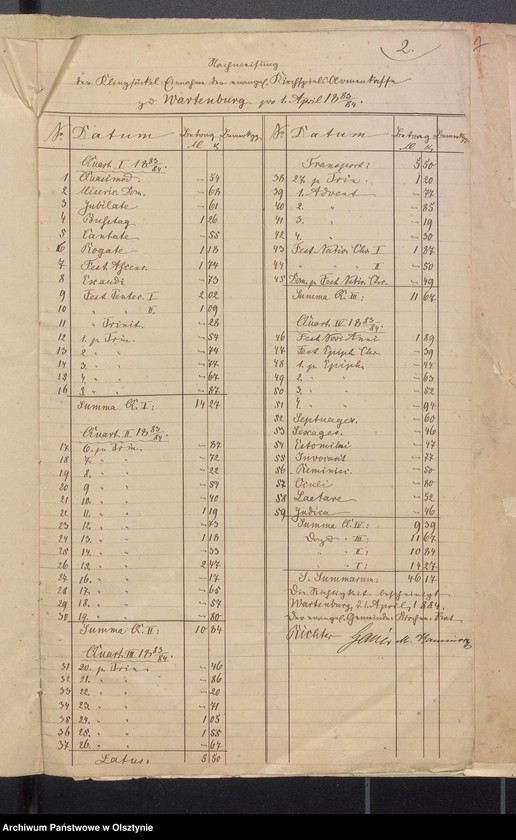 2.
Nachweisung
der Klingsäckel-Einnahme der evangel. Kirchspiels-Armenkasse
zu Wartenburg pro 1. April 18 83/84.
No Datum Betrag M. Bemerkgg.
Quart. I 18 83/84.
1 Quasimod: — 54
2 Miseric. Dom. — 68
3 Jubilate — 61
4 Bußtag 1 26
5 Cantate — 55
6 Rogate 1 13
7 Fest Ascens. 1 74
8 Exaudi — 73
9 Fest Pentec. I 2 02
10 " " II 1 09
11 " Trinit. — 28
12 1. p. Trin. — 54
13 2 " " — 74
14 3. " " — 77
15 4. " " — 67
16 " " — 87
Summa Q. I: 14 27
Quart. II 18 83/84.
17 6. p. Trin. — 37
18 7. " " — 72
19 8. " " — 22
20 9 " " — 54
21 10. " " — 40
22 11. " " 1 19
23 12. " " — 73
24 13. " " 1 18
25 14. " " — 33
26 15. " " 2 47
27 16. " " — 17
28 17. " " — 65
29 18. " " — 57
30 19. " " — 80
Summa Q. II: 10 34
Quart. III 18 83/84.
31 20. p. Trin: — 46
32 21. " " — 86
33 22. " " — 20
34 23. " " — 71
35 24. " " 1 05
36 25. " " 1 55
37 26. " " — 67
Latus: 5 50
No Datum Betrag M. Bemerkgg.
Transport: 5 50
38 27. p. Trin. 1 20
39 1. Advent — 77
40 2. " — 85
41 3. " — 19
42 4. " — 30
43 Fest. Nativ. Chr. I 1 87
44 " " " II — 50
45 Dom. p. Fest Nativ. Chr. — 49
Summa Q. III: 11 67
Quart. IV 18 83/84.
46 Fest Novi Anni 1 89
47 Fest Epiph. Chr. — 39
48 1. p. Epiph. — 44
49 2. " " — 63
50 3. " " — 52
51 4. " " — 94
52 Septuages. — 60
53 Sexages. — 46
54 Estomihi — 47
55 Invocavit — 77
56 Reminisc. — 50
57 Oculi — 80
58 Laetare — 52
59 Judica — 46
Summa Q. IV: 9 39
Dazu " III: 11 67
" " II: 10 84
" " I: 14 27
S. Summarum: 46 17
Die Richtigkeit bescheinigt
Wartenburg, d. 1. April, 1884.
Der evangl. Gemeinde-Kirchen-Rat.
Richter
Archiwum Państwowe w Olsztynie